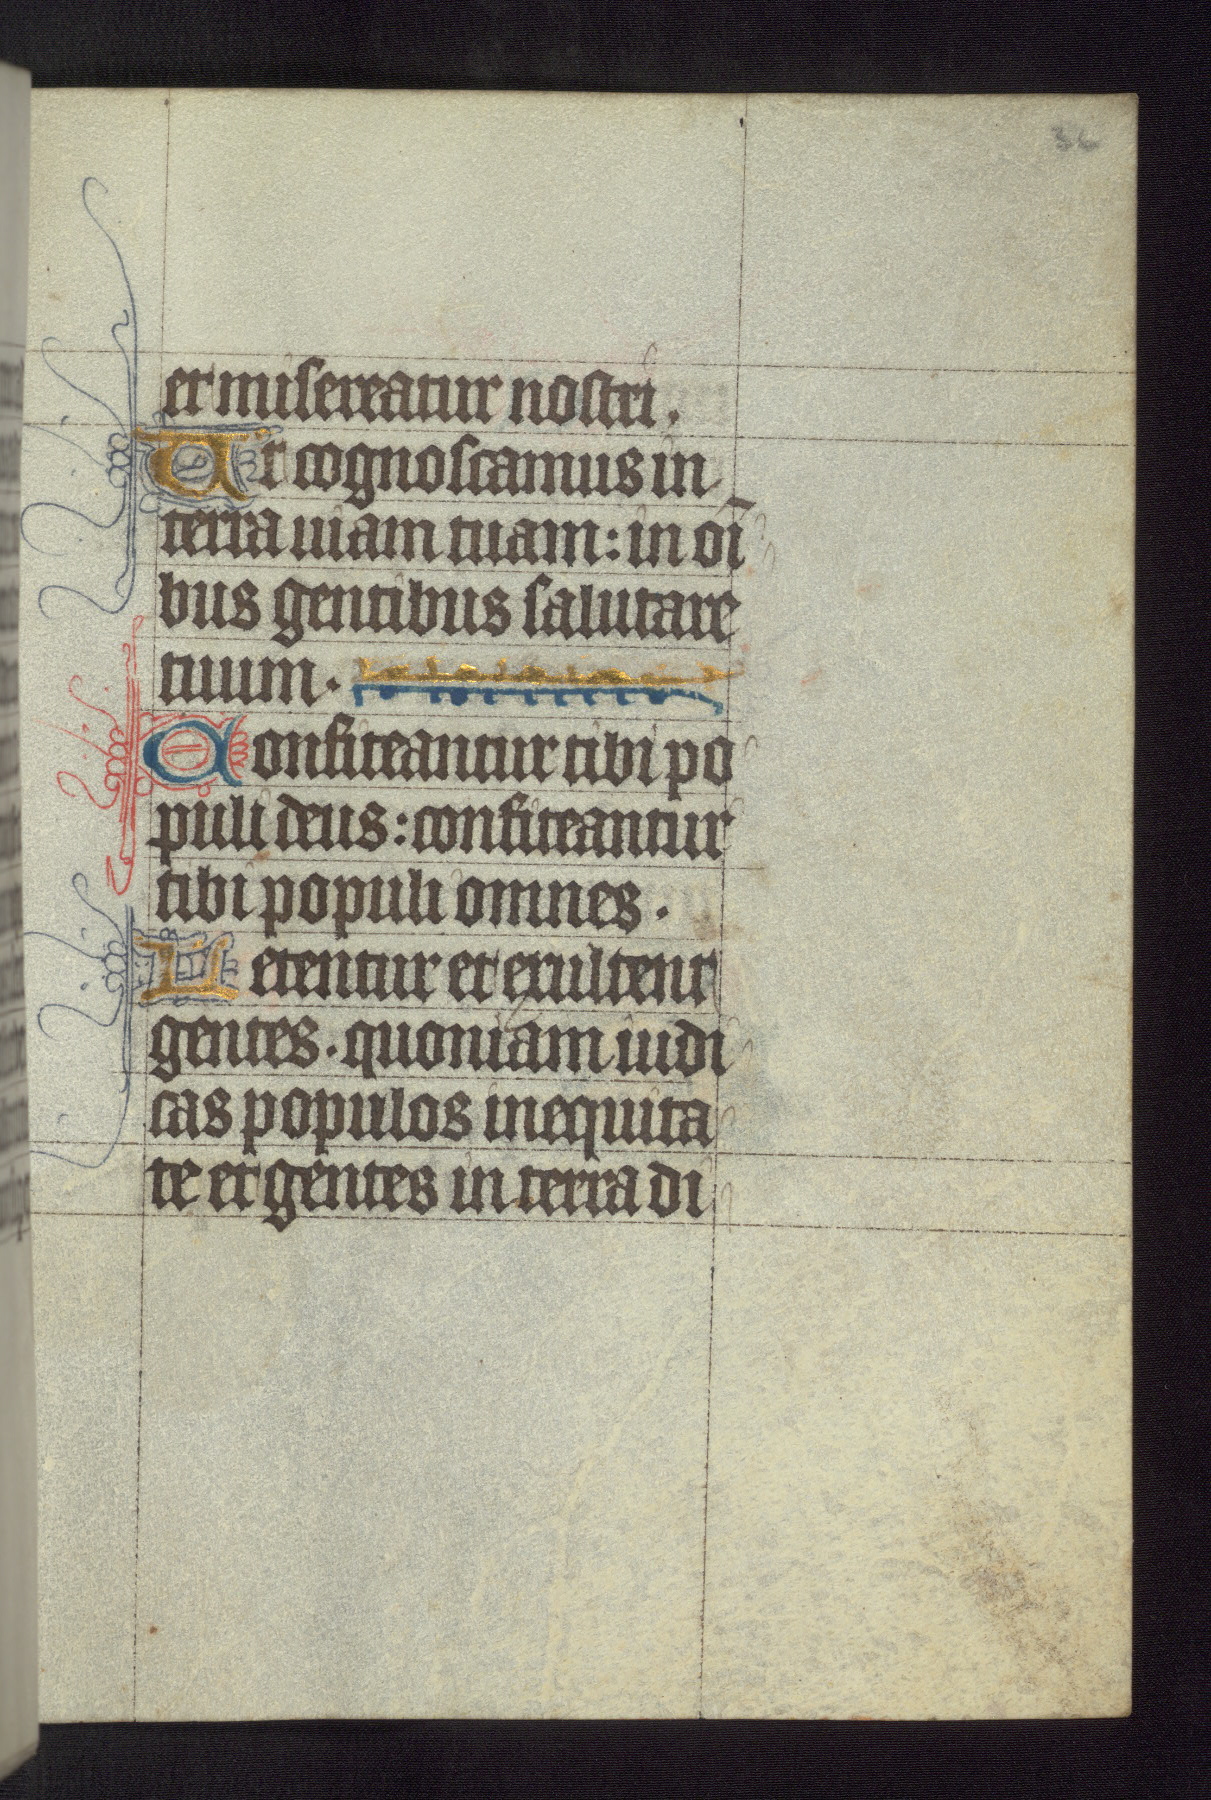 et misereatur nostri.
Ut cognoscamus in
terra uiam tuam: in oī
bus gentibus salutare
tuum.
Confiteantur tibi po
puli deus: confiteantur
tibi populi omnes.
Letentur et exultent
gentes. quoniam iudi
cas populos in equita
te et gentes in terra di